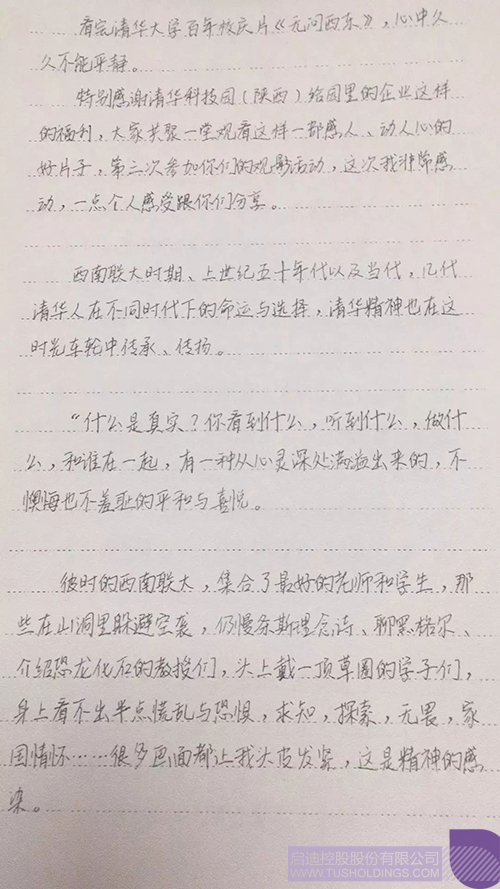 看完清华大学百年校庆片《无问西东》，心中久
久不能平静。
特别感谢清华科技园（陕西）给园里的企业这样
的福利，大家共聚一堂观看这样一部感人、动人心的
好片子，第三次参加你们的观影活动，这次我非常感
动，一点个人感受跟你们分享。
西南联大时期、上世纪五十年代以及当代，几代
清华人在不同时代下的命运与选择，清华精神也在这
时光车轮中传承、传扬。
“什么是真实？你看到什么，听到什么，做什
么，和谁在一起，有一种从心灵深处满溢出来的，不
懊悔也不羞耻的平和与喜悦。
彼时的西南联大，集合了最好的老师和学生，那
些在山洞里躲避空袭，仍慢条斯理念诗、聊黑格尔、
介绍恐龙化石的教授们，头上戴一顶草圈的学子们，
身上看不出半点慌乱与恐惧，求知，探索，无畏，家
国情怀……很多画面都让我头皮发紧，这是精神的感
染。
启迪控股股份有限公司
WWW.TUSHOLDINGS.COM